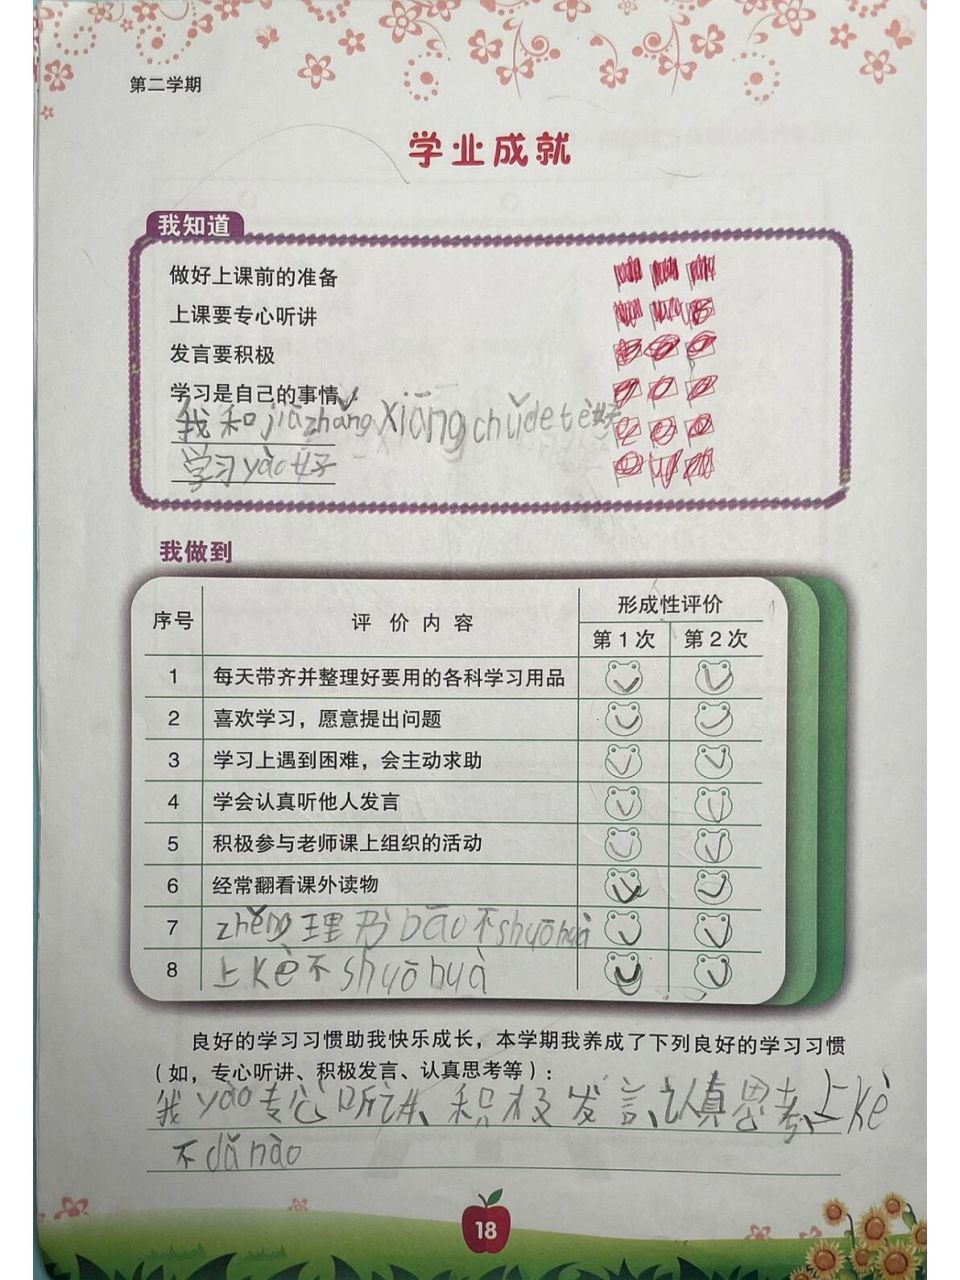 第二学期
学业成就
我知道
做好上课前的准备
上课要专心听讲
发言要积极
学习是自己的事情
我和jiāzhǎngxiāngchǔdetè好
学习yào好
我做到
序号 评价内容 形成性评价
第1次 第2次
1 每天带齐并整理好要用的各科学习用品
2 喜欢学习，愿意提出问题
3 学习上遇到困难，会主动求助
4 学会认真听他人发言
5 积极参与老师课上组织的活动
6 经常翻看课外读物
7 zhěng理书bāo不shuōhuà
8 上kè不shuōhuà
良好的学习习惯助我快乐成长，本学期我养成了下列良好的学习习惯
（如，专心听讲、积极发言、认真思考等）：
我yào专心听讲、积极发言、认真思考、上kè
不dǎnào
18